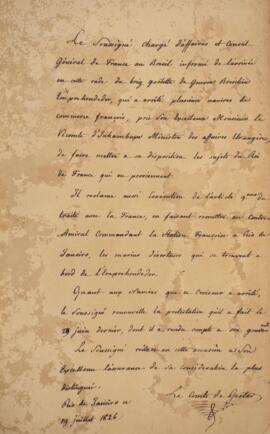 Le Soussigné chargé d'affaires et Consul
Général de France au Brésil informé de l'arrivée
en cette rade du brig goelette de Guerre Brésilien
Empréhendedor, qui a arrêté plusieurs navires du
commerce français, prie Son Excellence Monsieur le
Vicomte d'Inhambupe Ministre des affaires Etrangères,
de faire mettre à sa disposition les sujets du Roi
de France qui en proviennent.
Il réclame aussi l'exécution de l'article du
traité avec la France, en faisant remettre au Contre
Amiral Commandant la Station Française à Rio de
Janeiro, les marins déserteurs qui se trouvent à
bord de l'Empréhendedor.
Quant aux Navires que ce croiseur a arrêté,
le Soussigné renouvelle la protestation qu'il a fait le
juin dernier, dont il a rendu compte à son
Le Soussigné réitère en cette occasion à Son
Excellence l'assurance de sa considération la plus
distinguée.
Rio de Janeiro ce
19 juillet 1826
Le Comte de Gestas